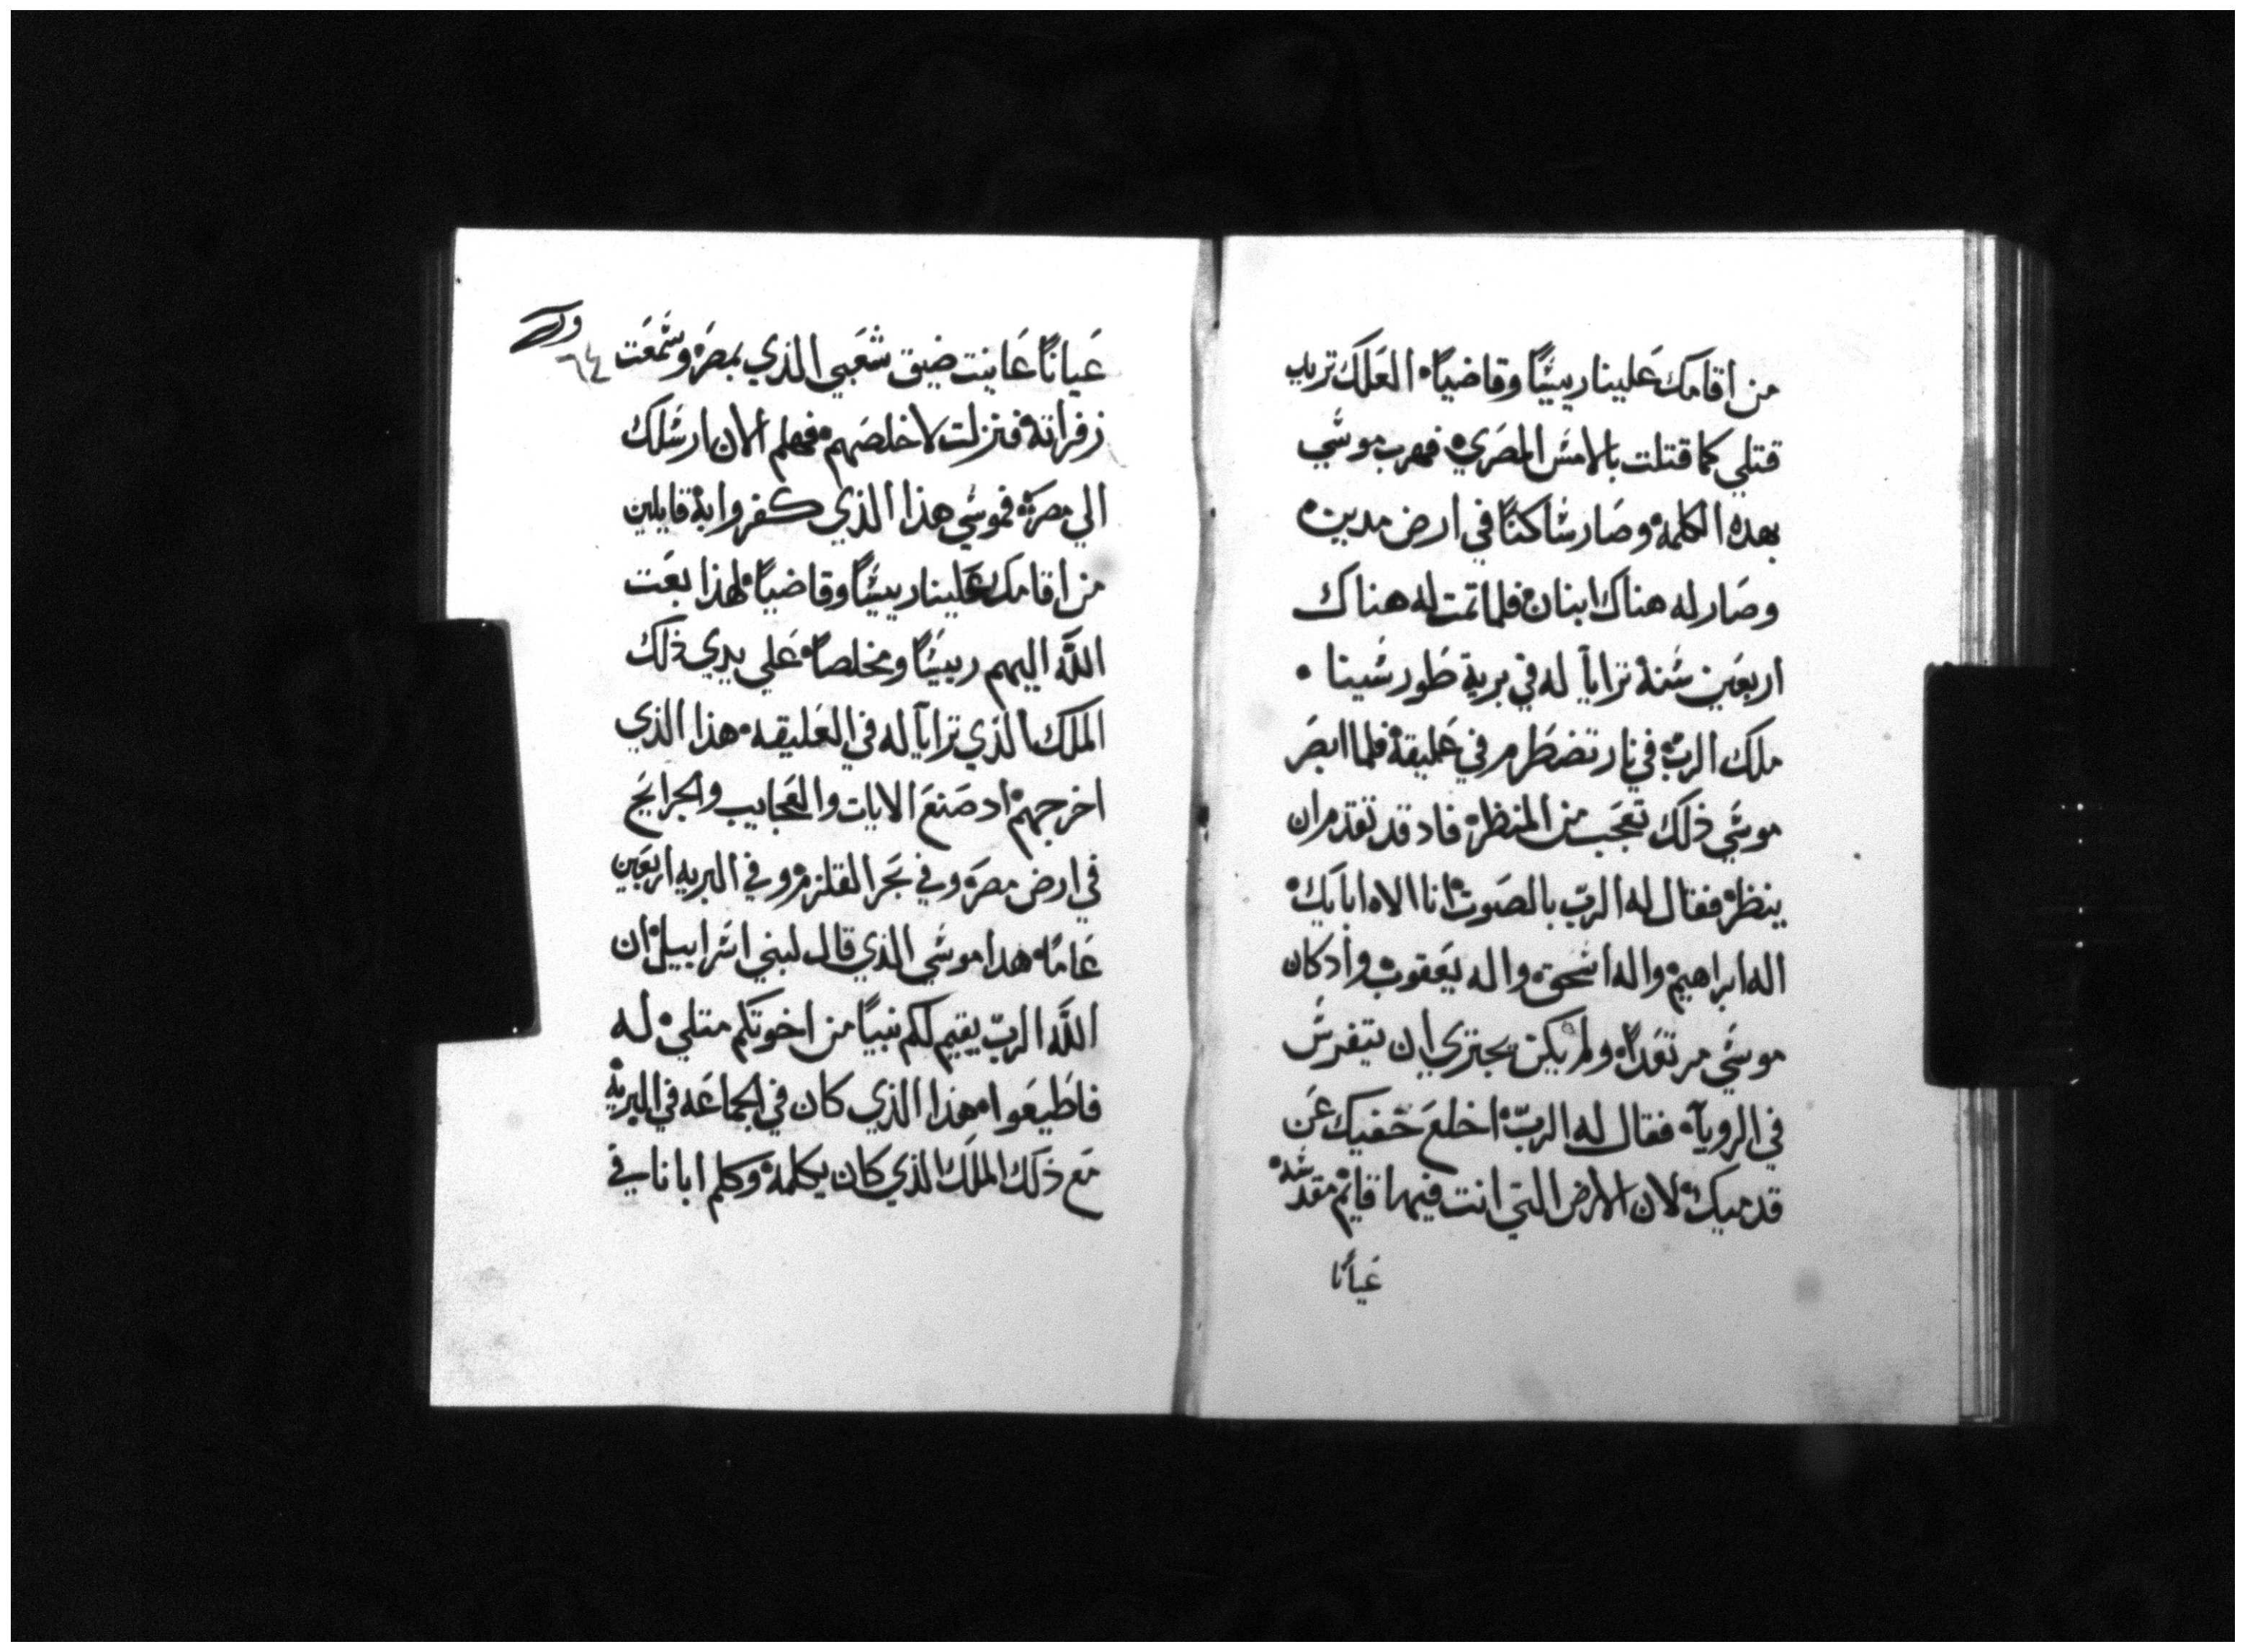 من اقامك عَلينا رييسًا وقاضيًا العَلك تريد
قتلي كما قتلت بالامس المصَري فهرب موسَي
بهده الكلمة وصَار ساكنًا في ارض مدين
وصَار له هناك ابنان فلما تمت له هناك
اربعَين سَنة ترايا له في برية طَور سَينا
ملك الربّ في نار تضطَرم في عَليقة فلما ابصَر
موسَي ذلك تعَجب من المنظر فاد قد تقدم ان
ينظر فقال له الربّ بالصَوت انا الاه ابايك
اله ابراهيم واله اسَحق واله يعَقوب واد كان
موسَي مرتعَدًا ولم يكن يجتري ان يتفرسَ
في الرويا فقال له الربّ اخلعَ خفيك عَن
قدميك لان الارض التي انت فيها قايم مقدسَة
عَيانًا
عَيانًا عَاينت ضيق شعَبي الذي بمصَر وسَمعَت
٦٤
زفراته فنزلت لاخلصَهم فهلم الان ارسَلك
الي مصَر فموسَي هذا الذي كفروا به قايلين
من اقامك عَلينا رييسًا وقاضيًا لهذا بعَت
اللّه اليهم رييسًا ومخلصًا عَلي يدي ذلك
الملك الذي ترايا له في العَليقه هذا الذي
اخرجهم اد صَنعَ الايات والعَجايب والجرايح
في ارض مصَر وفي بَحر القلزم وفي البريه اربعَين
عَامًا هدا موسَي الذي قال لبني اسَراييل ان
اللّه الربّ يقيم لكم نبيًا من اخوتكم متلي له
فاطَيعَوا هذا الذي كان في الجماعَه في البريه
مَع ذلك الملَك الذي كان يكلمه وكلم ابانا في